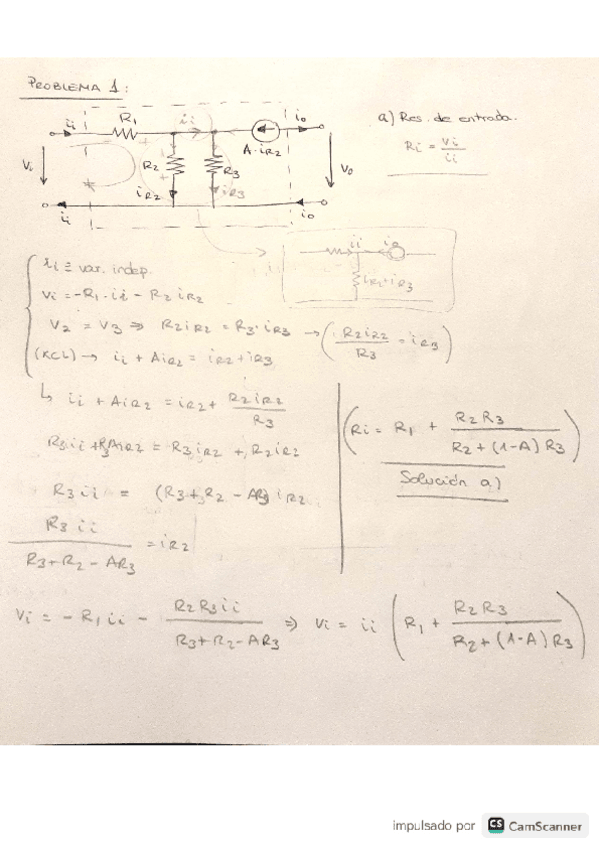 PROBLEMA 1:
a) Res. de entrada.
Ri = Vi / ii
ii R1 ii io
A·iR2
Vi R2 R3 Vo
iR2 iR3
ii io
ii
iR2+iR3
ii ≡ var. indep.
Vi = -R1·ii - R2 iR2
V2 = V3 ⇒ R2iR2 = R3·iR3 → (R2iR2 / R3 = iR3)
(KCL) → ii + AiR2 = iR2+iR3
↳ ii + AiR2 = iR2 + R2iR2 / R3
R3ii + R3AiR2 = R3iR2 + R2iR2
R3ii = (R3+R2 - AR3) iR2
R3 ii / R3+R2-AR3 = iR2
(Ri = R1 + R2R3 / R2+(1-A)R3)
Solución a)
Vi = -R1ii - R2R3ii / R3+R2-AR3 ⇒ Vi = ii (R1 + R2R3 / R2+(1-A)R3)
impulsado por CS CamScanner